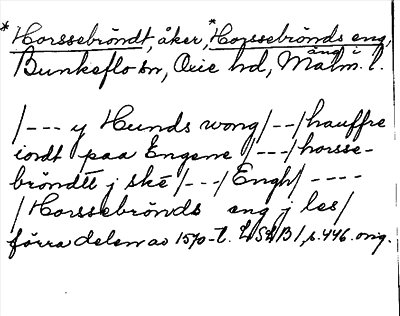 *Horssebröndt, åker, *Horssebrönds eng,
äng i
Bunkeflo sn, Oxie hd, Malm. l.
/--- y Hunds wong/--/hauffre
iordt paa Engene /---/horsse-
bröndtt j ske /---/Engh/ ----
/Horssebrönds eng j les/
förra delen av 1570-t. LSÄB 1, s. 446. orig.